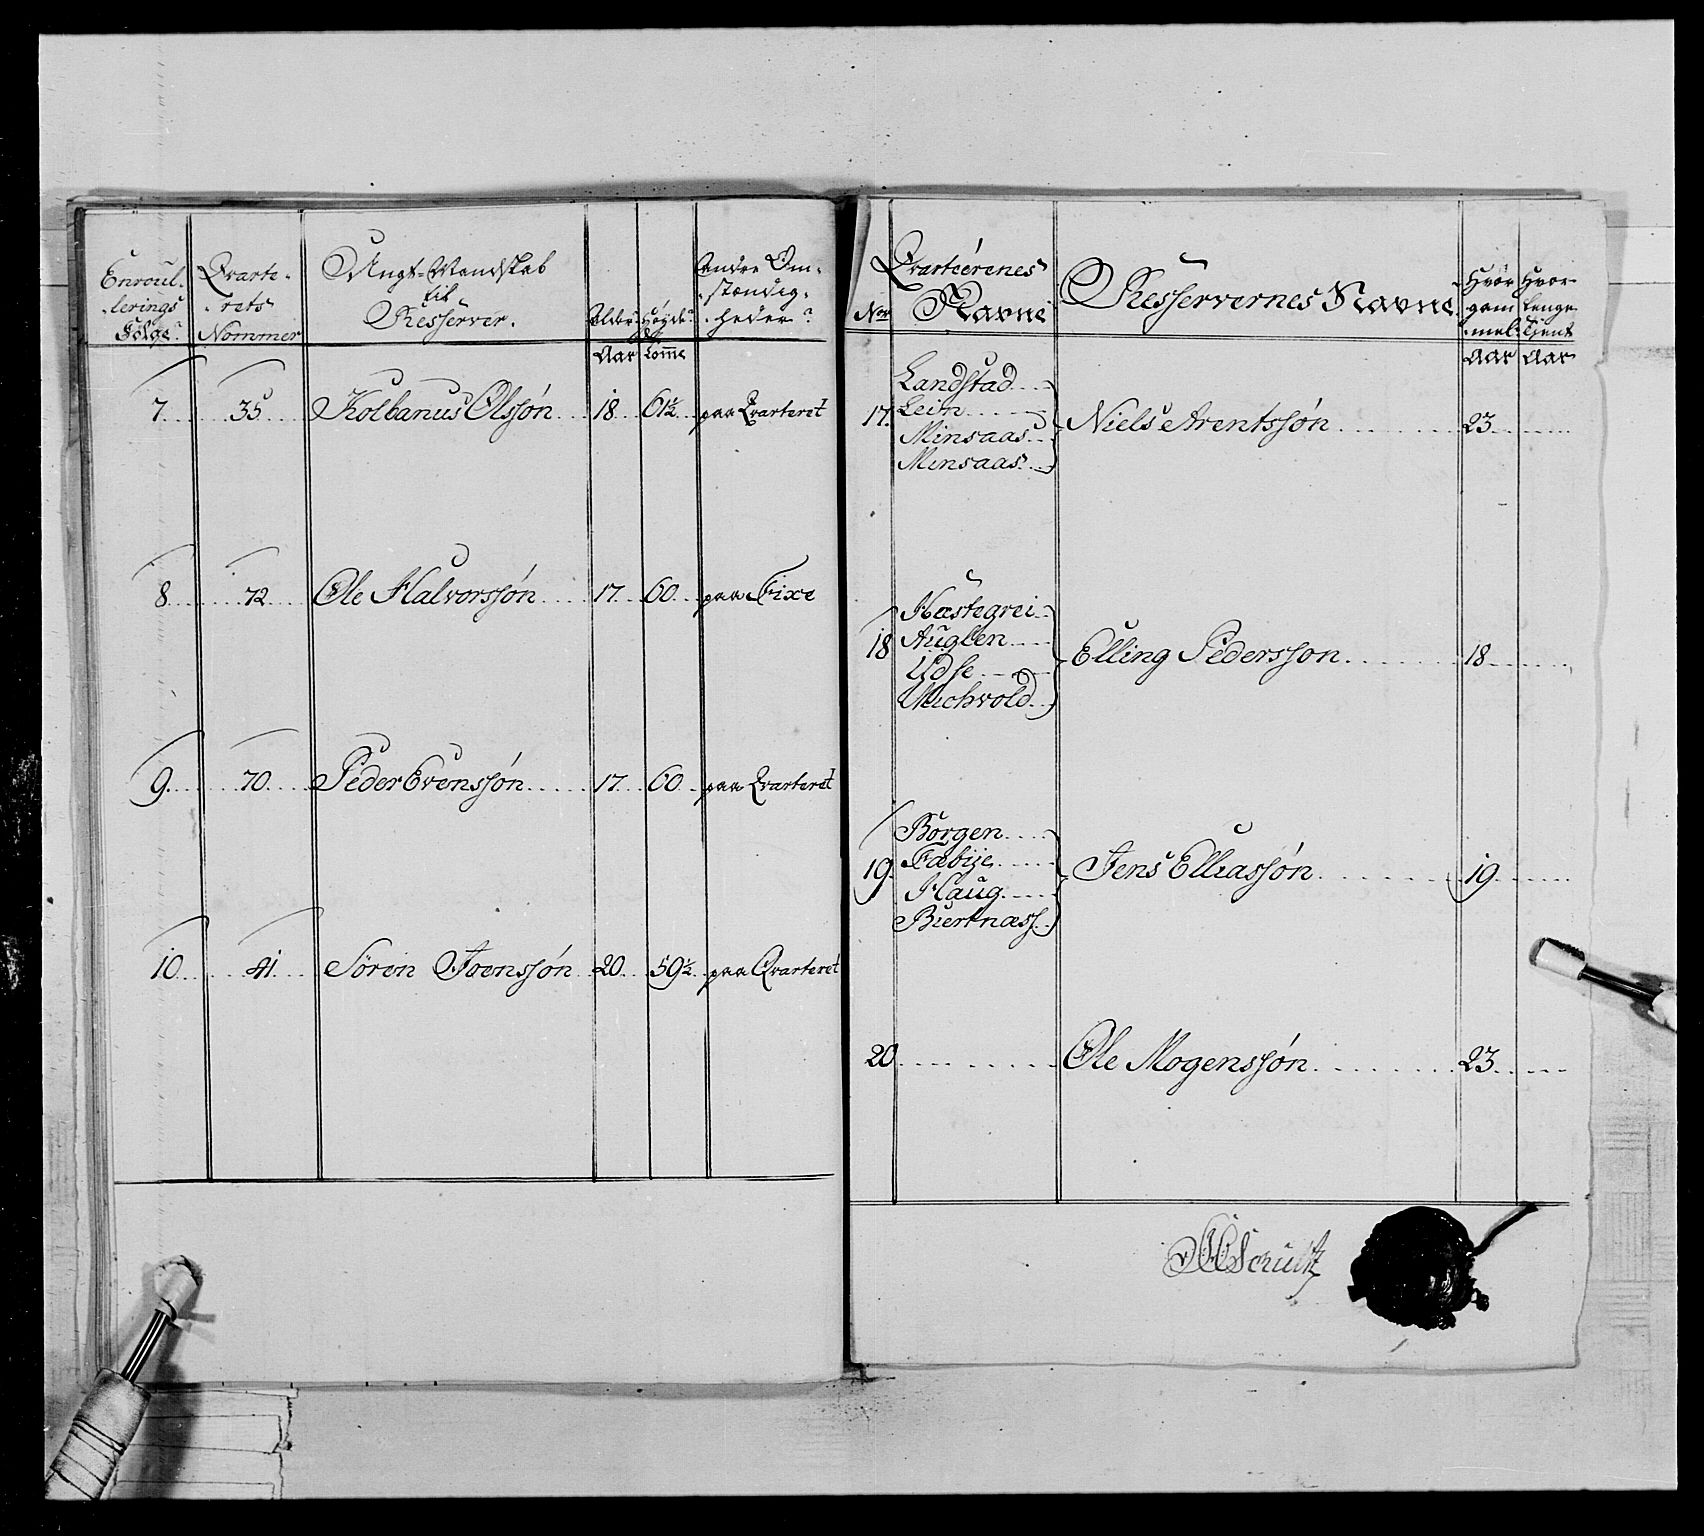 Enroul-
lerings
Følge
Qvarte-
rets
Nommer
Ungt-Mandskab
til
Resserver.
Alder
Aar
Høyde
Tomme
Andre Om-
stændig-
heder
7. 35 Kolbanus Olssøn 18 61½ paa Qvarteret
8 72 Ole Halvorssøn 17 60 paa Fixe
9 70 Peder Evenssøn 17 60 paa Qvarteret
10 41 Sören Joenssøn 20 59½ paa Qvarteret
No
Qvarteerenes
Navne
Resservernes Navne
Hvor
gam-
mel
Aar
Hvor-
lenge
Tient
Aar
Landstad
Lein
17. Minsaas Niels Arentssøn 23
Minsaas
Hæstegrei
Auglen
18 Udse Elling Pedersson 18
Michvold
Borgen
Fæbye
19. Haug Jens Elliassøn 19
Biertnæss
20 Ole Mogenssøn 23